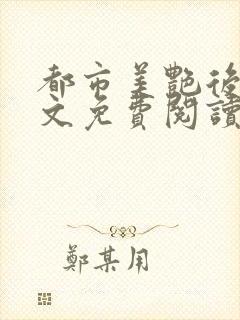 都市美艷後
文免費閱讀
鄭某用